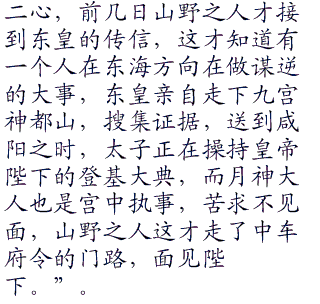 二心，前几日山野之人才接
到东皇的传信，这才知道有
一个人在东海方向在做谋逆
的大事，东皇亲自走下九宫
神都山，搜集证据，送到咸
阳之时，太子正在操持皇帝
陛下的登基大典，而月神大
人也是宫中执事，苦求不见
面，山野之人这才走了中车
府令的门路，面见陛
下。”。